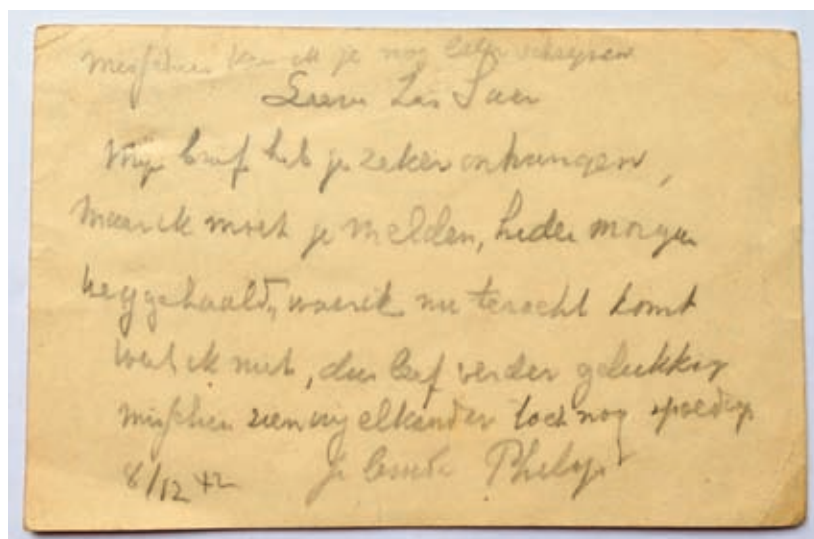 misschien kan ik je nog later schrijven
Lieve
Mijn brief heb je zeker ontvangen,
maar ik moet je melden, heden morgen
weggehaald, waar ik nu terecht komt
weet ik niet, dus leef verder gelukkig
misschien zien wij elkander toch nog spoedig
8/12 42 je Philip